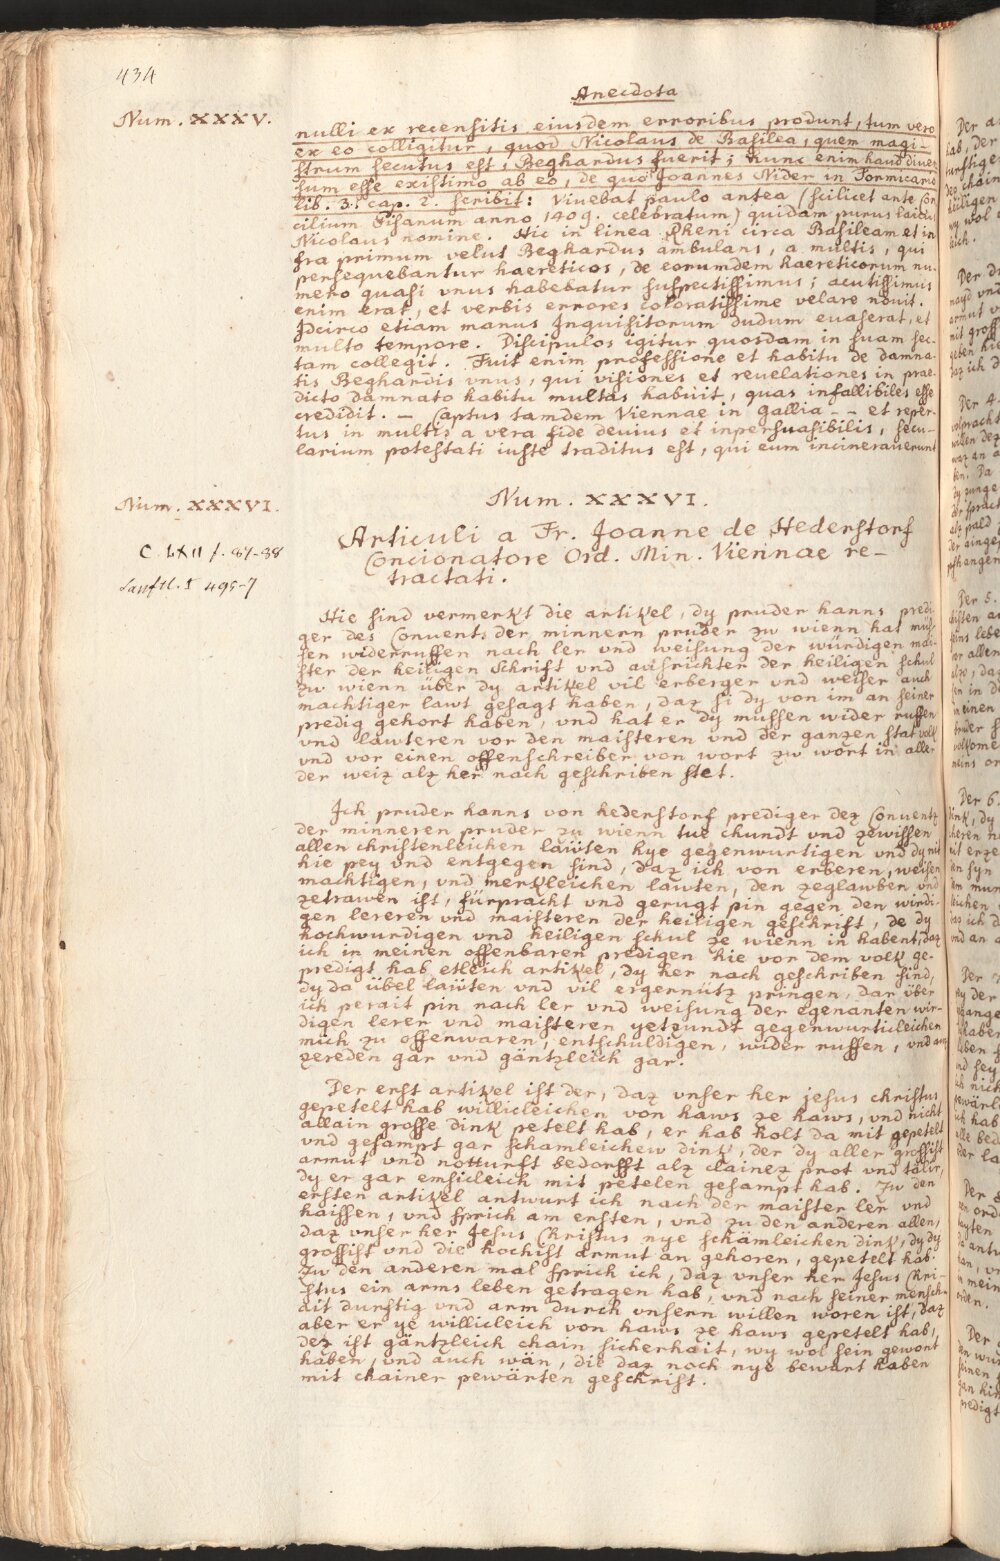 434
Anecdota
Num. XXXV.
nulli ex recensitis eiusdem erroribus produnt, tum vero
ex eo colligitur, quod Nicolaus de Basilea, quem magi-
strum secutus est, Beghardus fuerit; nunc enim haud diuer
sum esse existimo ab eo, de quo Joannes Nider in Formicario
lib. 3. cap. 2. scribit: Viuebat paulo antea (scilicet ante Con
cilium Pisanum anno 1409. celebratum) quidam purus laicus
Nicolaus nomine. Hic in linea Rheni circa Basileam et in
fra primum velut Beghardus ambulans, a multis, qui
persequebantur haereticos, de eorumdem haereticorum nu-
mero quasi vnus habebatur suspectissimus; acutissimus
enim erat, et verbis errores coloratissime velare nouit.
Jdcirco etiam manus Jnquisitorum dudum euaserat, et
multo tempore. Discipulos igitur quosdam in suam sec-
tam collegit. Fuit enim professione et habitu de damna-
tis Beghardis vnus, qui visiones et reuelationes in prae-
dicto damnato habitu multas habuit, quas infallibiles esse
credidit. – Captus tamdem Viennae in Gallia – – et reper-
tus in multis a vera fide deuius et inpersuasibilis, secu-
larium potestati iuste traditus est, qui eum incinerauerunt
Num. XXXVI.
Num. XXXVI.
C. LXII f. 87-88
495-7
Articuli a Fr. Joanne de Hederstorf
Concionatore Ord. Min. Viennae re-
tractati.
Hie sind vermerkt die artikel, dy pruder hanns predi-
ger des Conuents der minnern pruder zw wienn hat mus-
sen widerruffen nach ler vnd weisung der würdigen mai-
ster der heiligen Schrift vnd ausrichter der heiligen schul
zw wienn über dy artikel vil erberger vnd weiser auch
machtiger lawt gesagt haben, daz si dy von im an seiner
predig gehort haben, vnd hat er dy mussen wider ruffen
vnd lawteren vor den maisteren vnd der ganzen stat volk
vnd vor einen offenschreiber von wort zw wort in aller
der weiz alz her nach geschriben stet.
Jch pruder hanns von hederstorf prediger dez Conuentz
der minneren pruder zu wienn tue chundt vnd zewissen
allen christenleichen lawten hye gegenwurtigen vnd dy nit
hie pey vnd entgegen sind, daz ich von erberen, weisen
machtigen, vnd merkleichen lawten, den zeglawben vnd
zetrawen ist, fürpracht vnd gerugt pin gegen den wirdi-
gen lereren vnd maisteren der heiligen geschrift, de dy
hochwurdigen vnd heiligen schul ze wienn in habent, daz
ich in meinen offenbaren predigen hie vor dem volk ge-
predigt hab etleich artikel, dy her nach geschriben sind,
dy da übel lawten vnd vil ergernütz pringen, dar über
ich perait pin nach ler vnd weisung der egenanten wir-
digen lerer vnd maisteren yetzundt gegenwurticleichen
mich zu offenwaren, entschuldigen, wider ruffen, vnd aus
zereden gar vnd gäntzleich gar.
Der erst artikel ist der, daz vnser her jesus christus
gepetelt hab willicleichen von haws ze haws, vnd nicht
allain grosse dink petelt hab, er hab holt da mit gepetelt
vnd gesampt gar schamleichew dink, der dy aller grossist
armut vnd notturft bedorfft alz clainez prot vnd tailir,
dy er gar emsicleich mit petelen gesampt hab. Zw den
ersten artikel antwurt ich nach der maister ler vnd
haissen, vnd sprich am ersten, vnd zu den anderen allen,
daz vnser her Jesus Christus nye schämleichen dink, dy dy
grossist vnd die hochist armut an gehoren, gepetelt hab.
Zw den anderen mal sprich ich, daz vnser her Jesus Chri-
stus ein arms leben getragen hab, vnd nach seiner mensch-
ait durftig vnd arm durch vnsern willen woren ist, daz
aber er ye willicleich von haws ze haws gepetelt hab,
dez ist gäntzleich chain sicherhait, wy wol sein gewont
haben, vnd auch wän, die daz noch nye bewart haben
mit chainer pewärten geschrift.